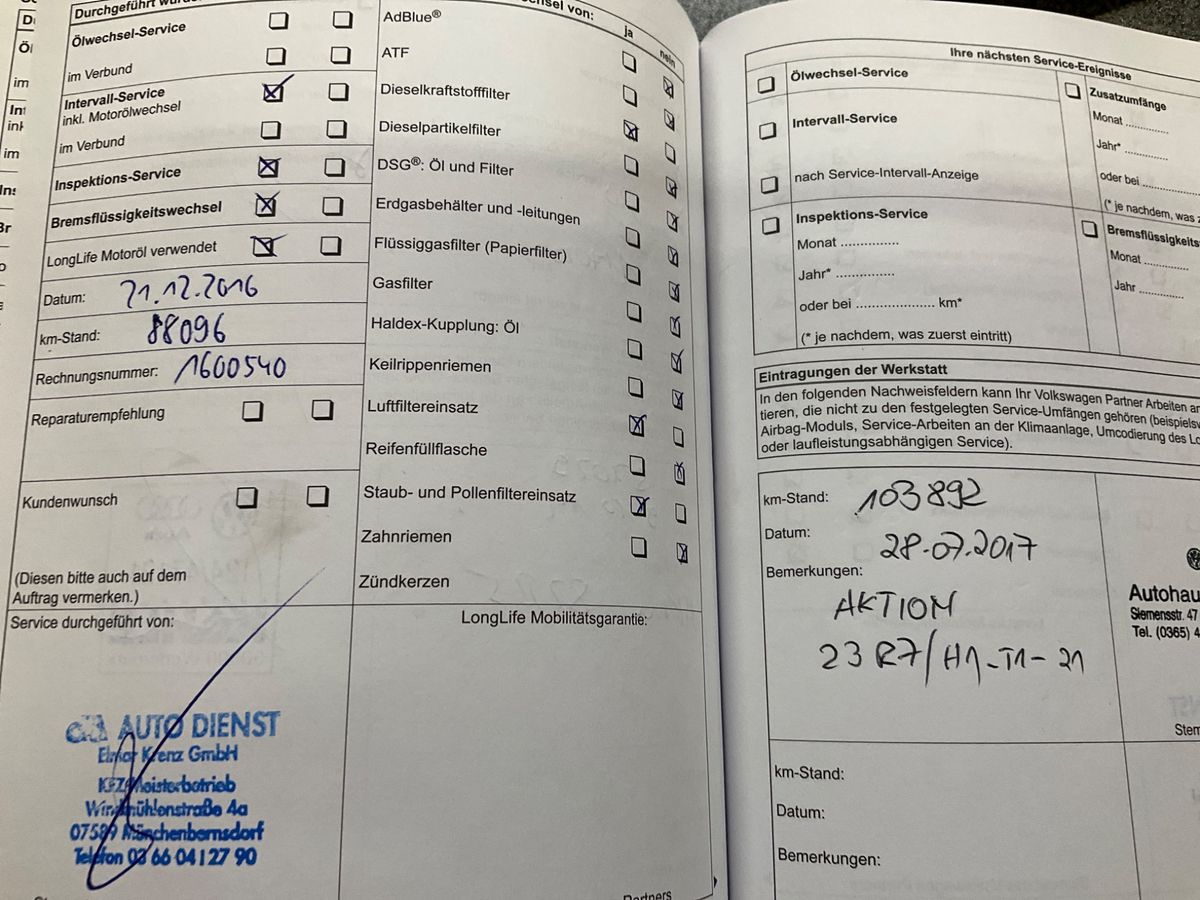 Durchgeführt wurde
Ölwechsel-Service
im Verbund
Intervall-Service
inkl. Motorölwechsel
im Verbund
Inspektions-Service
Bremsflüssigkeitswechsel
LongLife Motoröl verwendet
Datum: 21.12.2016
km-Stand: 88096
Rechnungsnummer: 1600540
Reparaturempfehlung
Kundenwunsch
(Diesen bitte auch auf dem
Auftrag vermerken.)
Service durchgeführt von:
AUTO DIENST
Elmar Krenz GmbH
KFZ-Meisterbetrieb
Windmühlenstraße 4a
07589 Münchenbernsdorf
Telefon 03 66 04 1 27 90
von:
ja nein
AdBlue®
ATF
Dieselkraftstofffilter
Dieselpartikelfilter
DSG®: Öl und Filter
Erdgasbehälter und -leitungen
Flüssiggasfilter (Papierfilter)
Gasfilter
Haldex-Kupplung: Öl
Keilrippenriemen
Luftfiltereinsatz
Reifenfüllflasche
Staub- und Pollenfiltereinsatz
Zahnriemen
Zündkerzen
LongLife Mobilitätsgarantie:
Partners
Ihre nächsten Service-Ereignisse
Ölwechsel-Service
Intervall-Service
nach Service-Intervall-Anzeige
Inspektions-Service
Monat ...............
Jahr* ...............
oder bei .................... km*
(* je nachdem, was zuerst eintritt)
Zusatzumfänge
Monat ..............
Jahr* ..............
oder bei ..............
(* je nachdem, was z
Bremsflüssigkeits
Monat ..............
Jahr ..............
Eintragungen der Werkstatt
In den folgenden Nachweisfeldern kann Ihr Volkswagen Partner Arbeiten
tieren, die nicht zu den festgelegten Service-Umfängen gehören (beispielsw
Airbag-Moduls, Service-Arbeiten an der Klimaanlage, Umcodierung des Lo
oder laufleistungsabhängigen Service).
km-Stand: 103892
Datum: 28.07.2017
Bemerkungen:
AKTION
23R7/H1-T1-21
Autohau
Siemensstr. 47
Tel. (0365) 4
Stem
km-Stand:
Datum:
Bemerkungen: